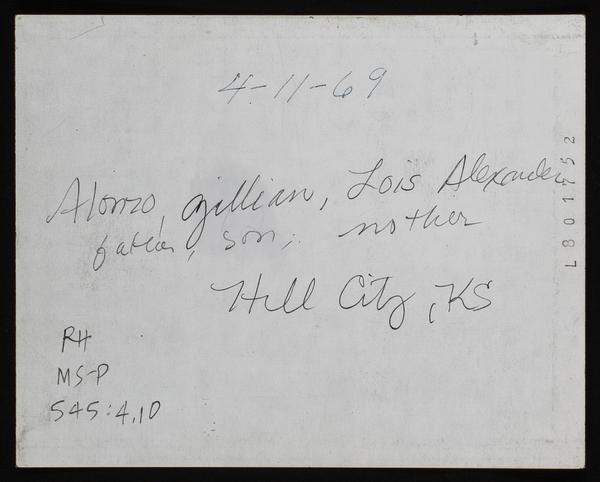 4-11-69
Alonzo, Gillian, Lois Alexander
father, son, mother
Hill City, KS
RH
MS-P
545:4.10
L801752